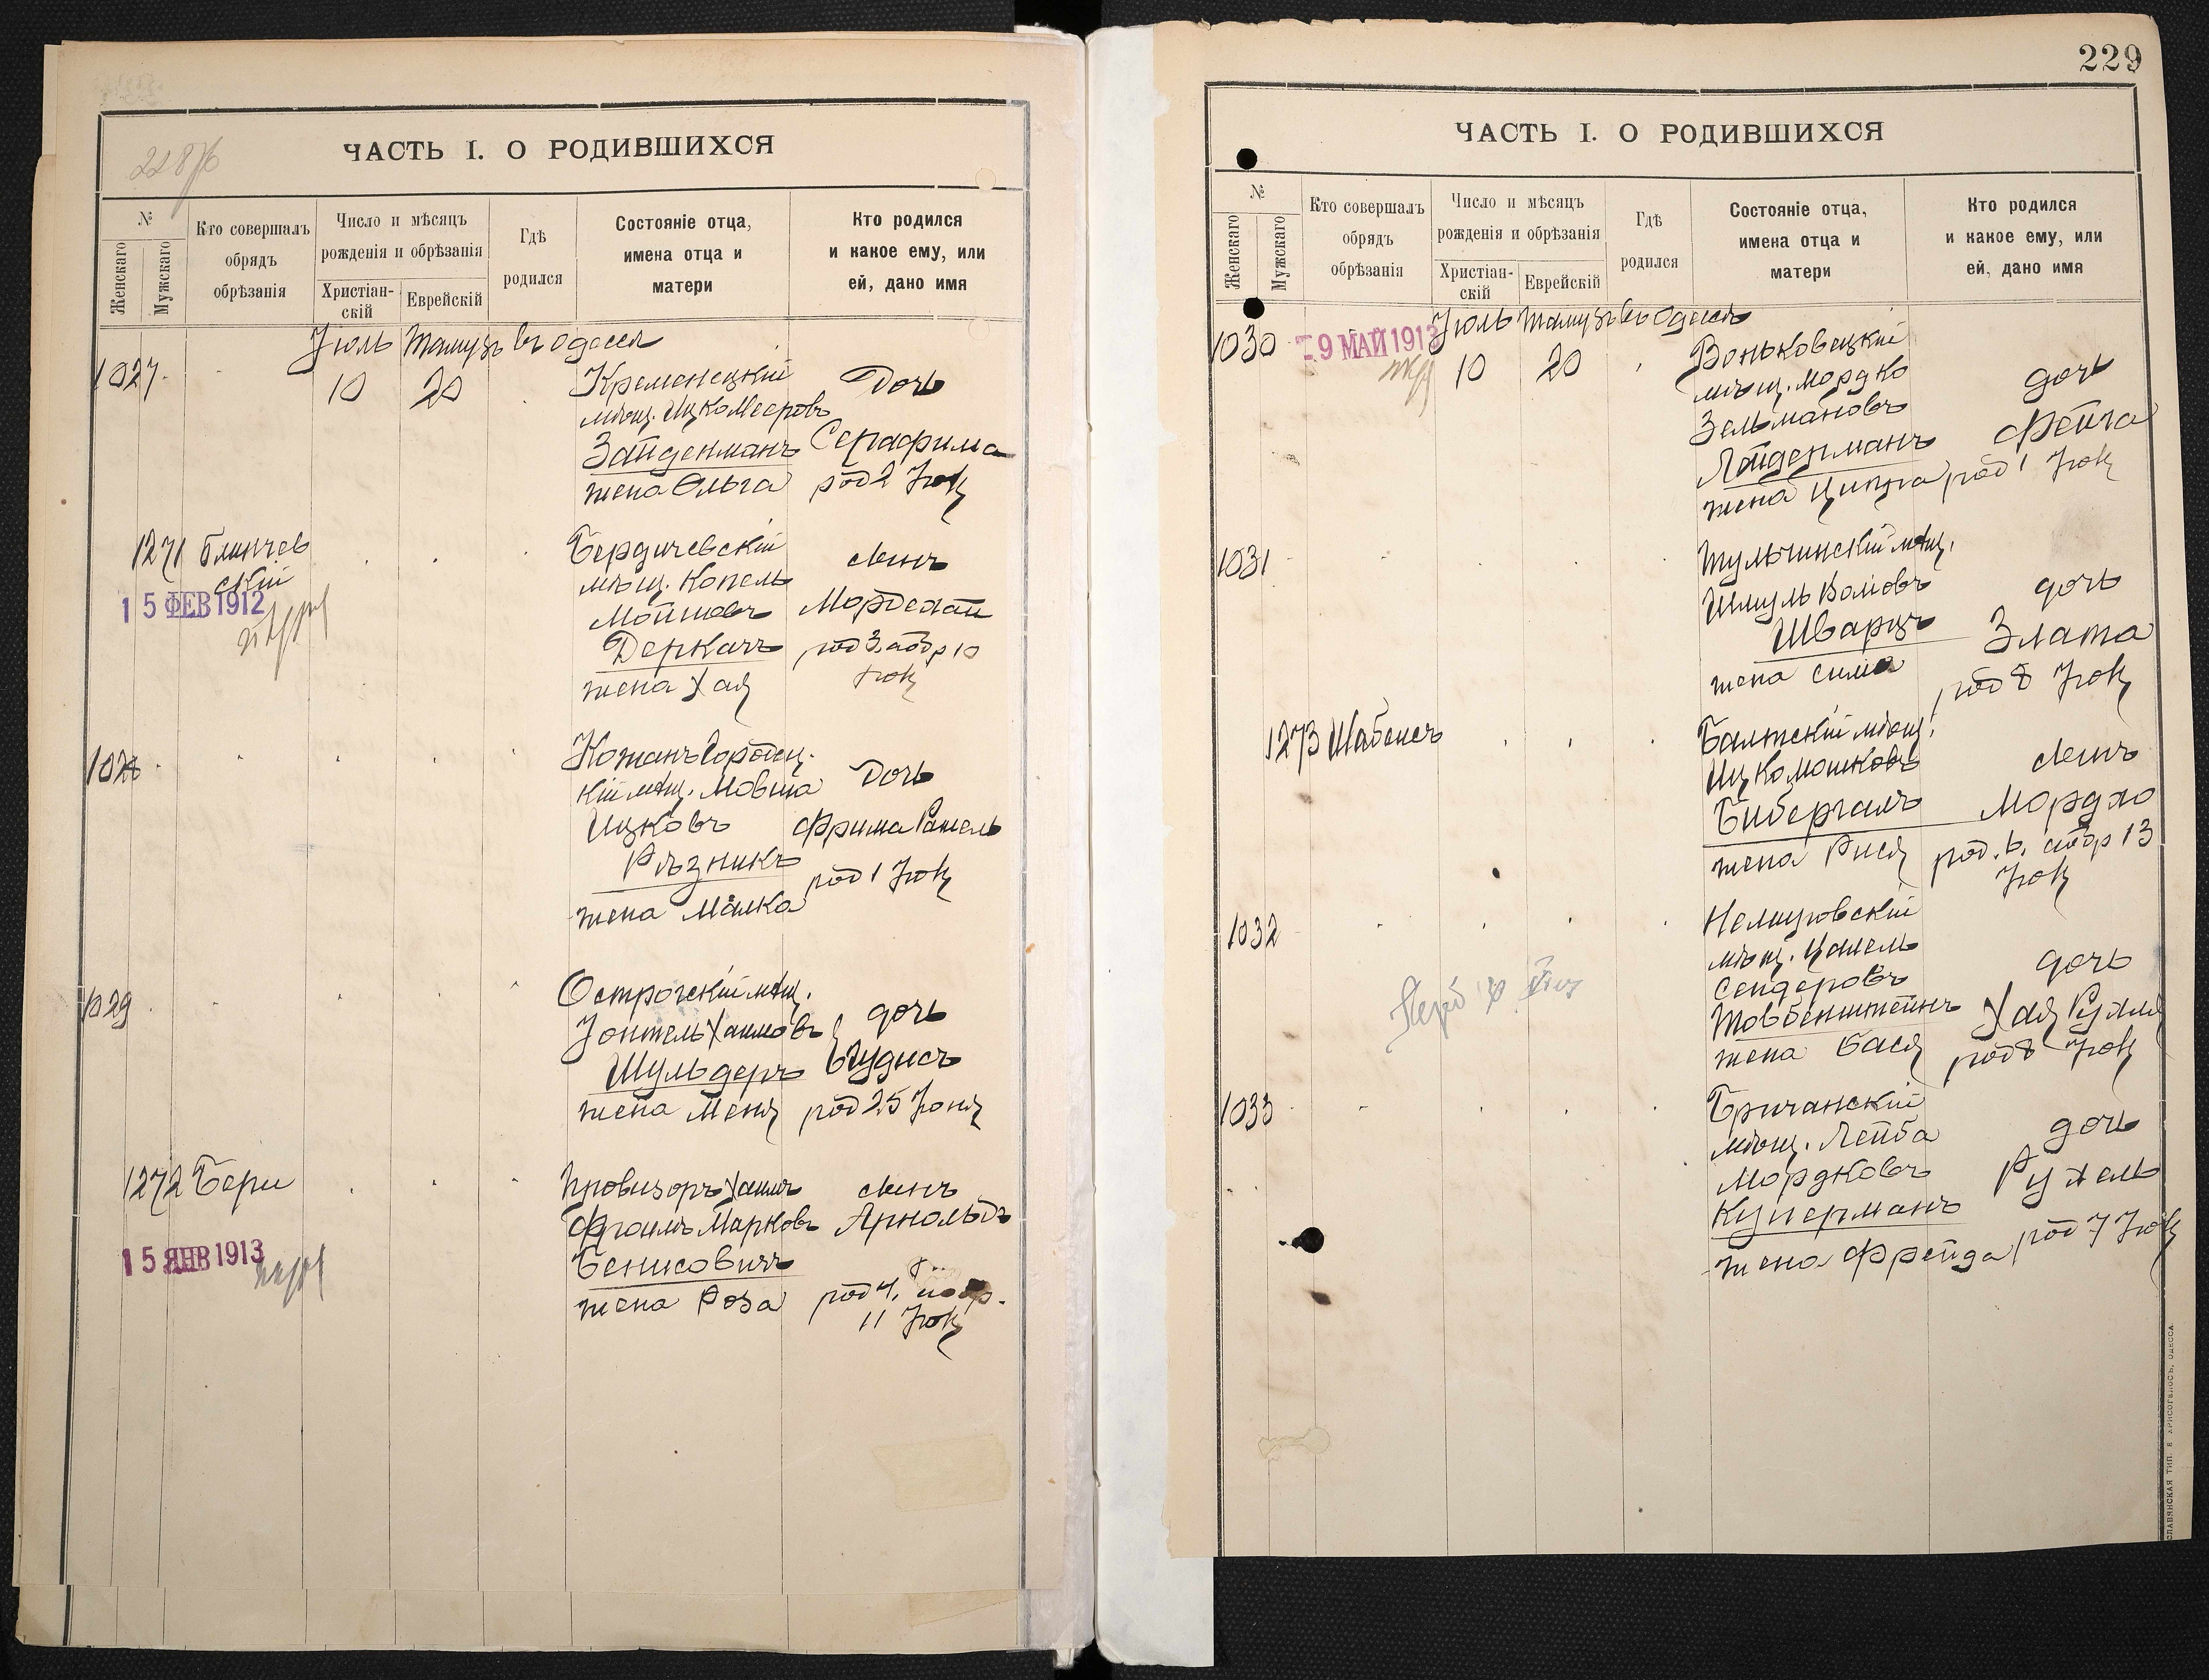 ЧАСТЬ I. О РОДИВШИХСЯ
№
Женскаго
Мужскаго
Кто совершалъ
обрядъ
обрѣзанія
Число и мѣсяцъ
рожденія и обрѣзанія
Христіан-
скій
Еврейскій
Гдѣ
родился
Состояніе отца,
имена отца и
матери
Кто родился
и какое ему, или
ей, дано имя
Іюль Тамузъ въ Одессѣ
1027
10
20
Кременецкій
мѣщ. Ицко Мееровъ
Зайденманъ
жена Ольга
Дочь
Серафима
род 2 Іюля
1271
Блинчев
скій
15 ФЕВ 1912
Бердичевскій
мѣщ. Копель
Мошковъ
Деркачъ
жена Хая
сынъ
Мордехай
род 3, а обр 10
Іюля
1028
Кожанъ Городец.
кій мѣщ. Мовша
Ицковъ
Рѣзникъ
жена Малка
Дочь
Фрима Рахель
род 1 Іюля
1029
Острогскій мѣщ.
Зонтель Хаимовъ
Шульдеръ
жена Меня
дочь
Іудись
род 25 Іюня
1272
Бери
15 ЯНВ 1913
Провизоръ Хаимъ
Фроимъ Марковъ
Бенисовичъ
жена Роза
сынъ
Арнольдъ
род 4, обр.
11 Іюля
229
ЧАСТЬ I. О РОДИВШИХСЯ
№
Женскаго
Мужскаго
Кто совершалъ
обрядъ
обрѣзанія
Число и мѣсяцъ
рожденія и обрѣзанія
Христіан-
скій
Еврейскій
Гдѣ
родился
Состояніе отца,
имена отца и
матери
Кто родился
и какое ему, или
ей, дано имя
Іюль Тамузъ въ Одессѣ
1030
9 МАЙ 1913
10
20
Воньковецкій
мѣщ. Мордко
Зельмановъ
Лайденманъ
жена Ципра
дочь
Фейга
род 1 Іюля
1031
Тульчинскій мѣщ.
Шмуль Волковъ
Шварцъ
жена Сима
дочь
Злата
род 8 Іюля
1273
Шабсисъ
Балтскій мѣщ.
Ицко Мошковъ
Бибергалъ
жена Рися
сынъ
Мордхо
род. 6. а обр 13
Іюля
1032
Немировскій
мѣщ. Хамель
Сендеровъ
Товбенштейнъ
жена Бася
дочь
Хая Рухля
род 8 Іюля
1033
Бричанскій
мѣщ. Лейба
Мордковъ
Куперманъ
жена Фрейда
дочь
Рухель
род 7 Іюля